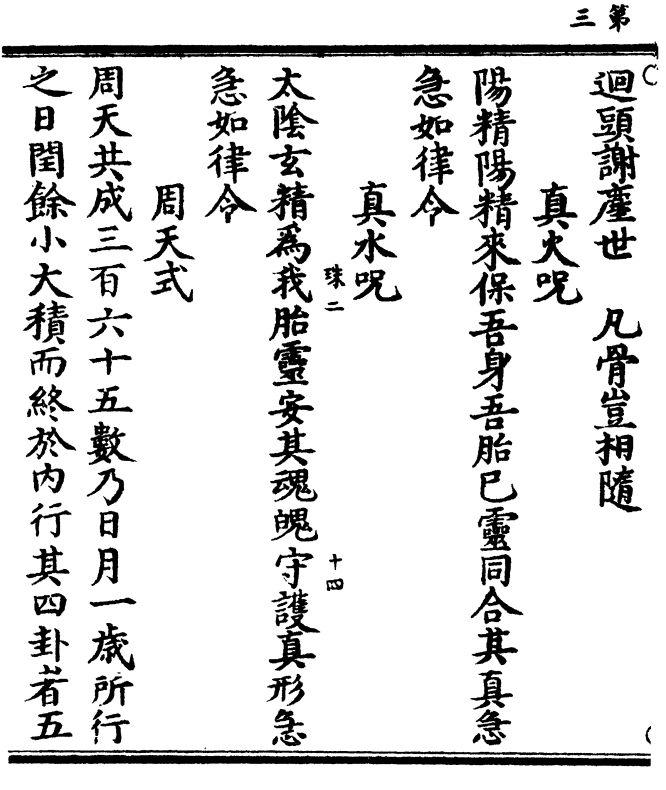 第三
迴頭謝塵世　凡骨豈相隨
真火呪
陽精陽精來保吾身吾胎已靈同合其真急
急如律令
真水呪
珠二
十四
太陰玄精為我胎靈安其魂魄守護真形急
急如律令
周天式
周天共成三百六十五數乃日月一歲所行
之日閏餘小大積而終於內行其四卦者五